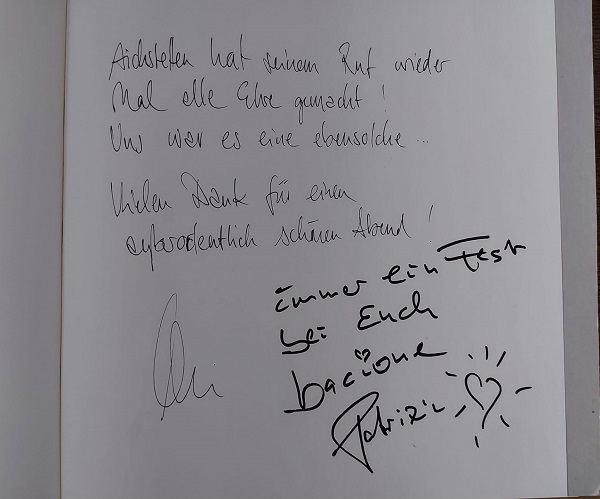 Aichstetten hat seinem Ruf wieder
Mal alle Ehre gemacht!
Uns war es eine ebensolche ...
Vielen Dank für einen
außerordentlich schönen Abend!
immer ein Fest
bei Euch
bacione
Patrizia